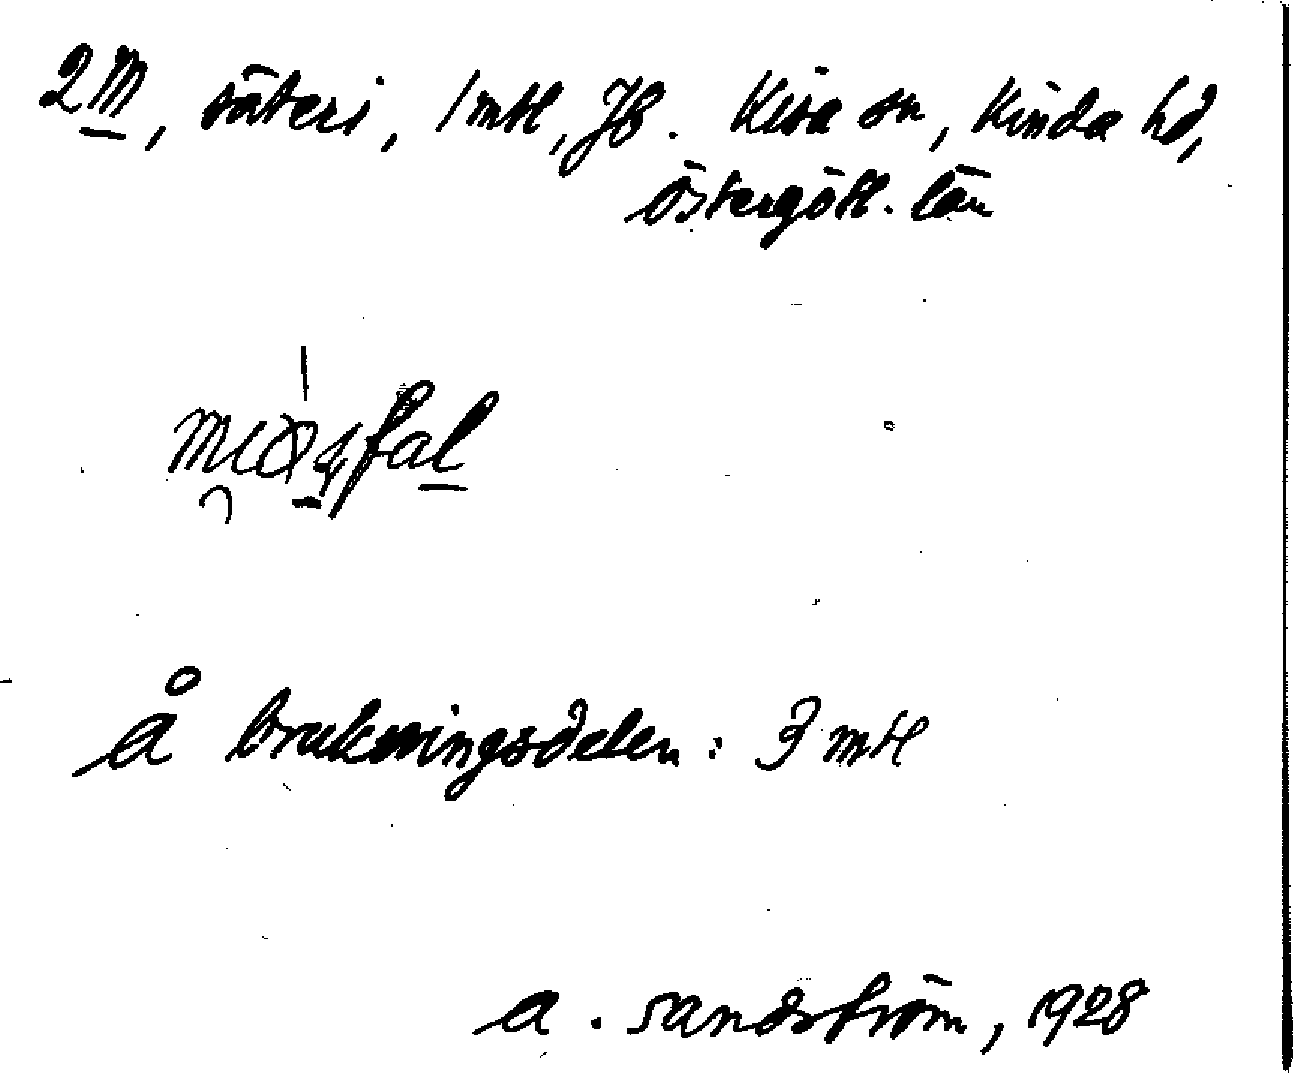 2 M, säteri, 1 mtl, Jb. Kisa sn, Kinda hd,
Östergötl. län
Å beskrivningsdelen: 3 mtl
A. Sandström, 1928